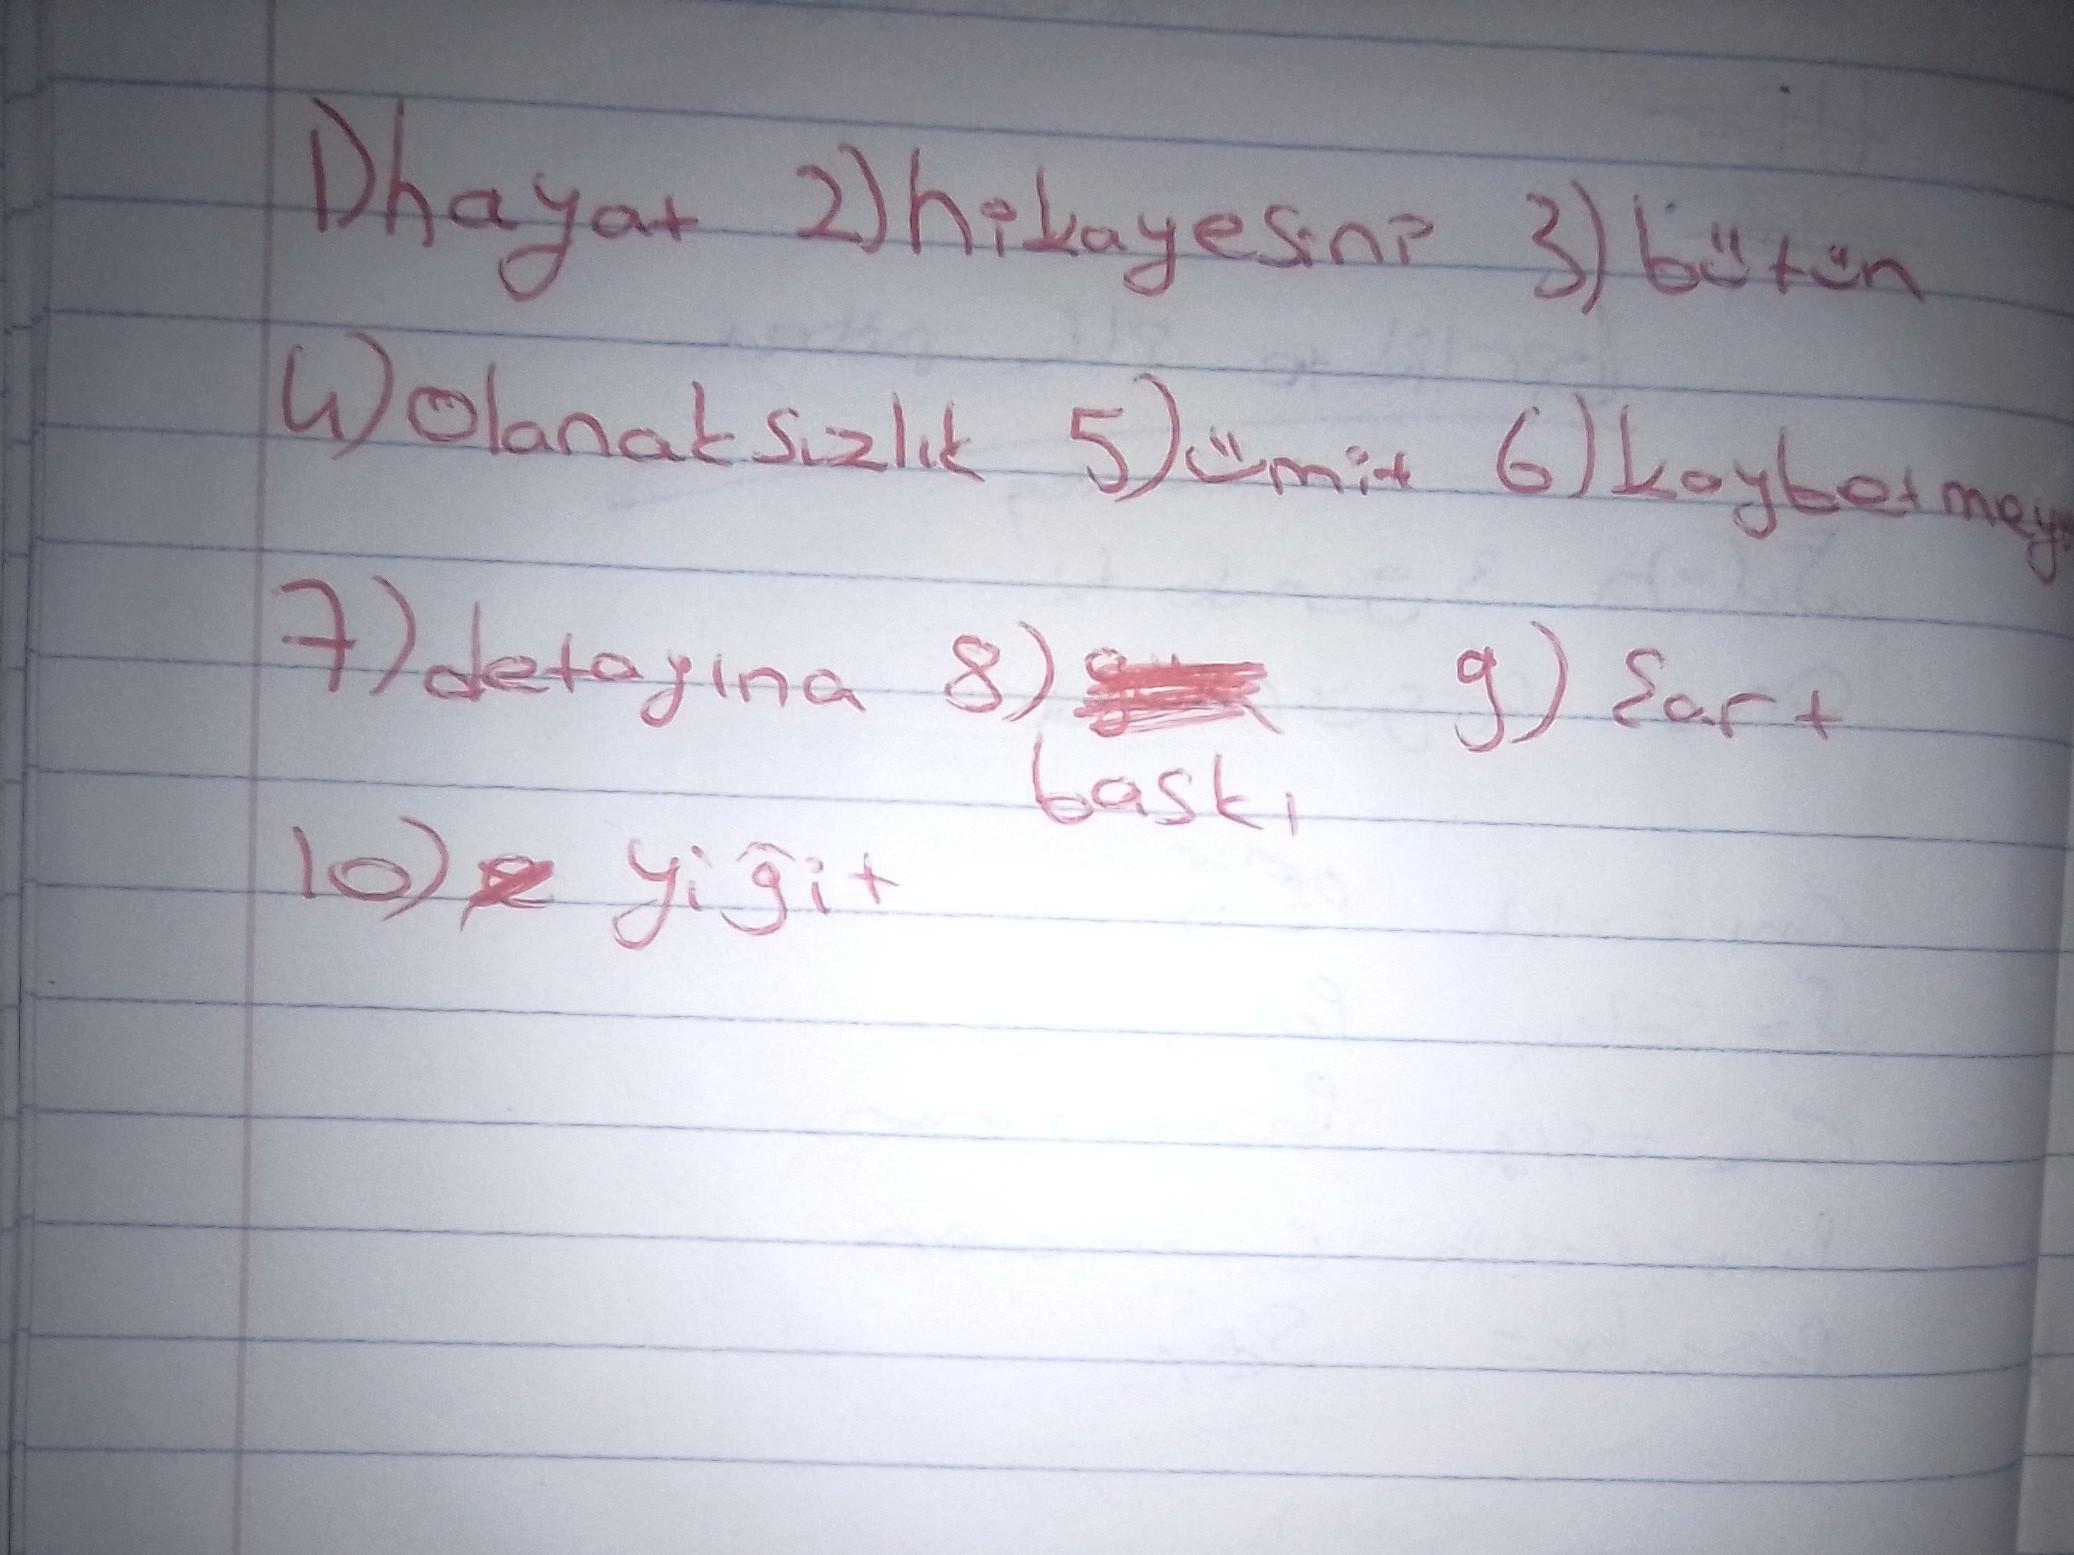 1) hayat 2) hikayesini 3) bütün
4) olanaksızlık 5) ümit 6)
7) detayına 8) 9) Şart
baskı
10) yiğit